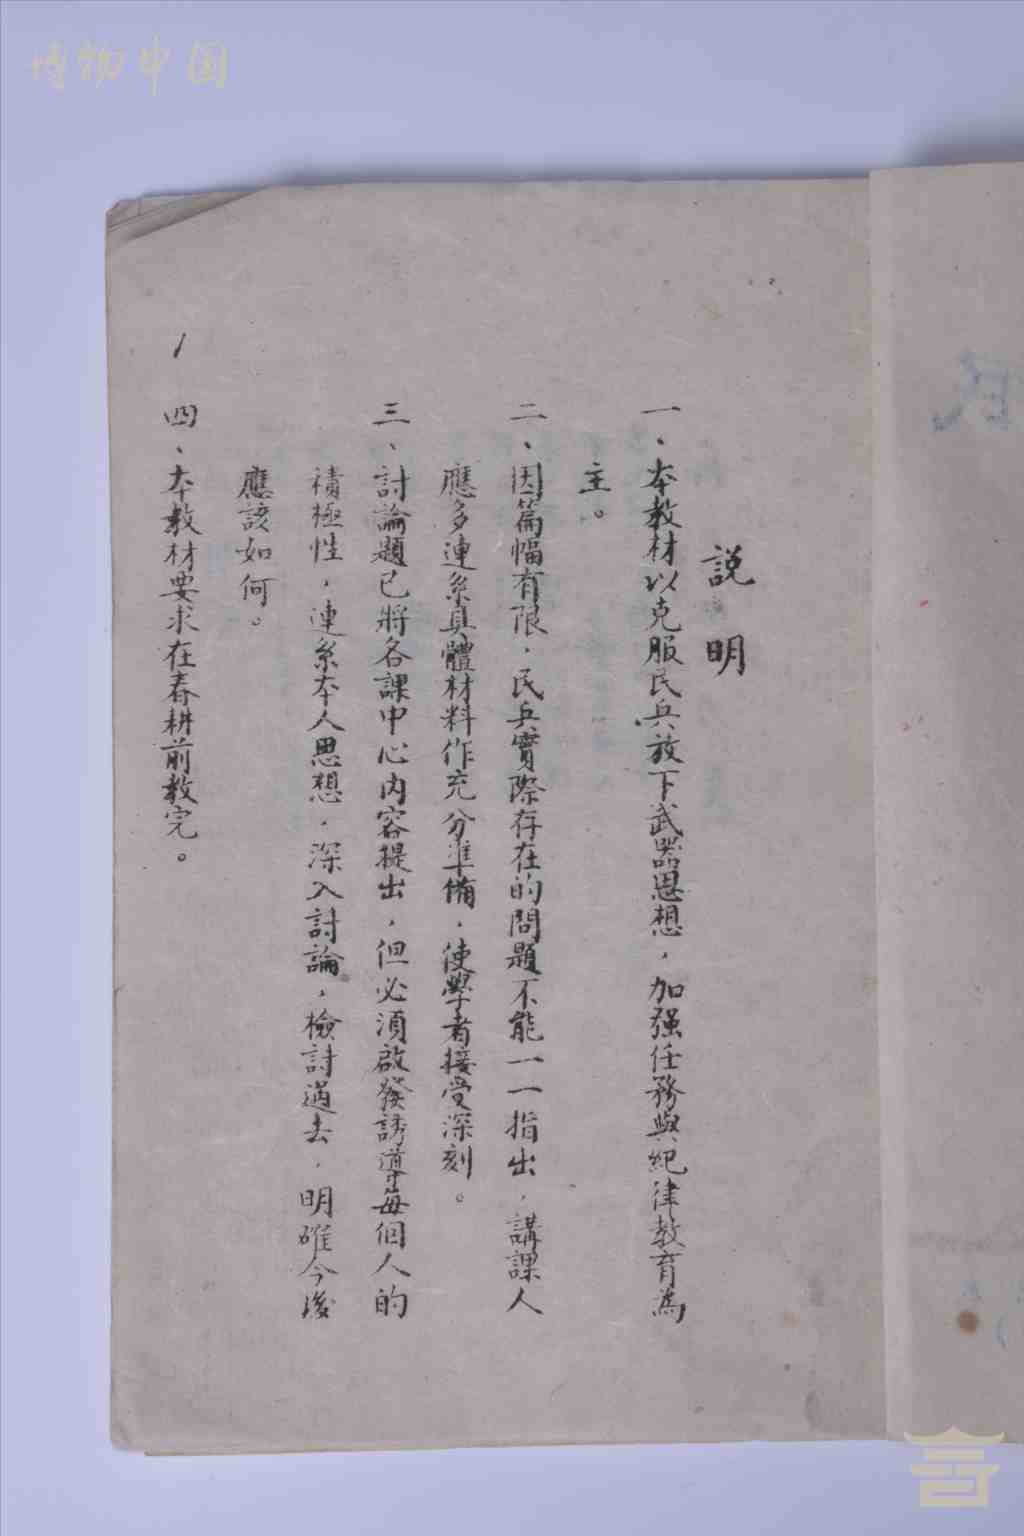 博物中国
説明
一、本教材以克服民兵放下武器思想，加强任務與紀律教育為
主。
二、因篇幅有限，民兵實際存在的問題不能一一指出，講課人
應多連系具體材料作充分準備，使學者接受深刻。
三、討論題已將各課中心內容提出，但必須啟發誘導每個人的
積極性，連系本人思想，深入討論，檢討過去，明確今後
應該如何。
四、本教材要求在春耕前教完。
1
民